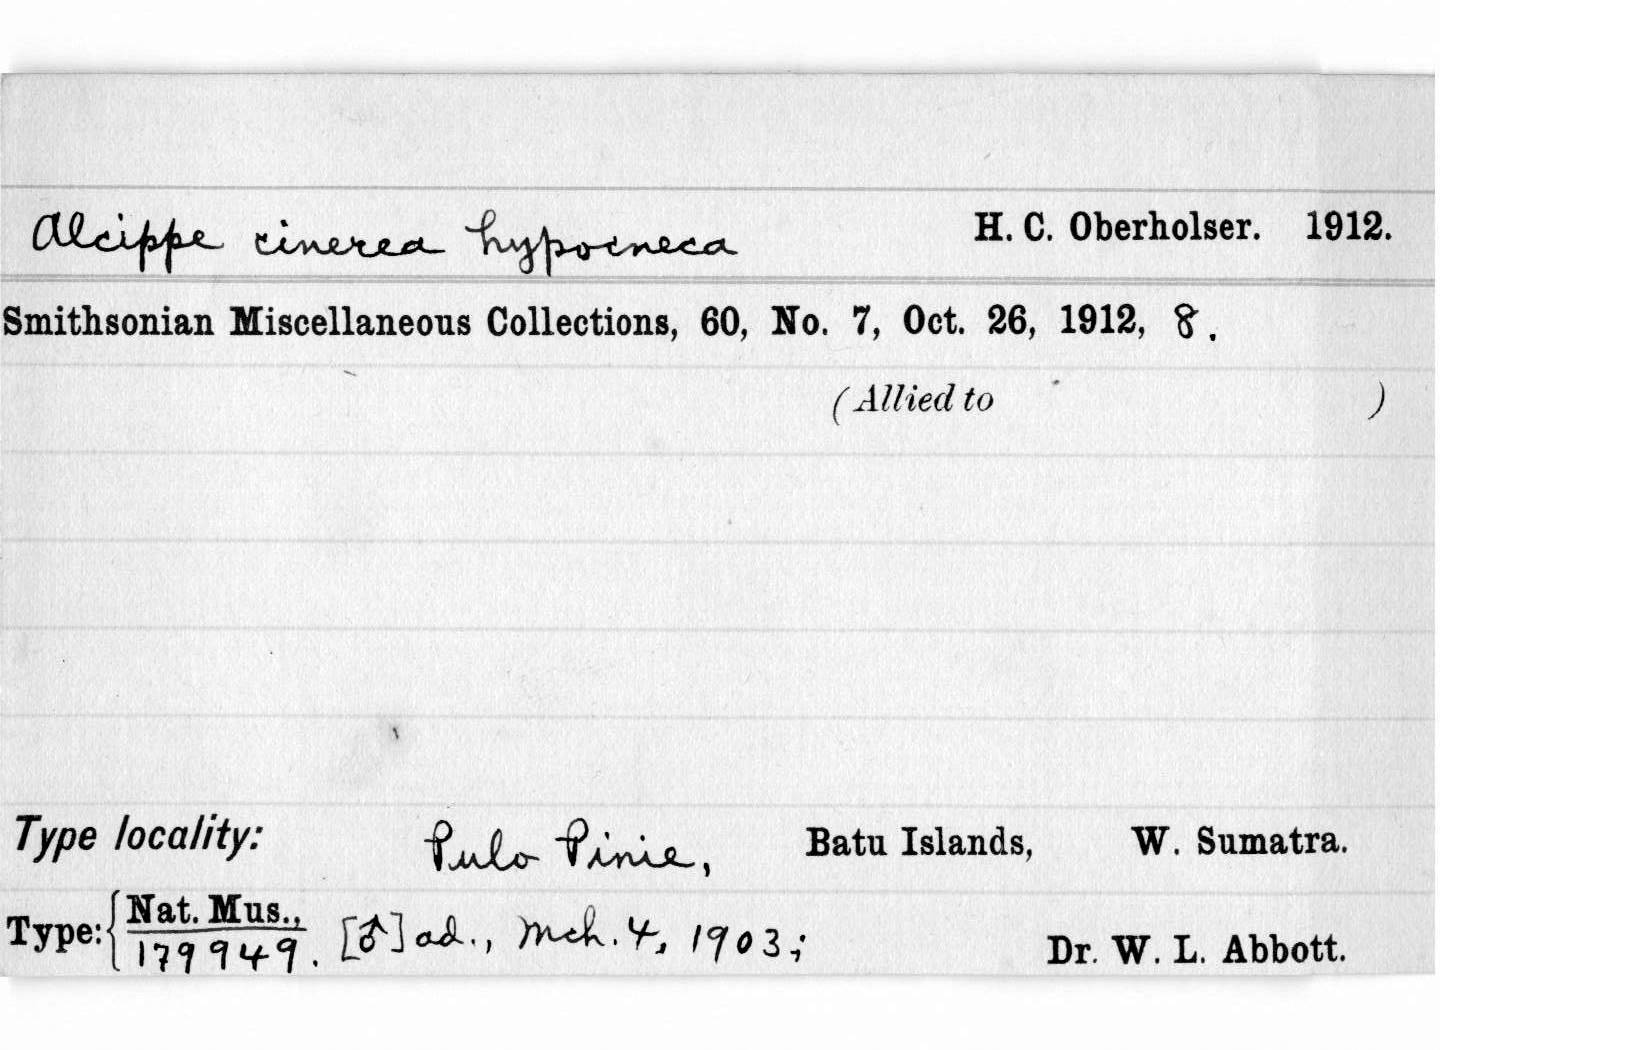 Alcippe cinerea hypocneca H. C. Oberholser. 1912.
Smithsonian Miscellaneous Collections, 60, No. 7, Oct. 26, 1912, 8.
(Allied to )
Type locality: Pulo Pinie, Batu Islands, W. Sumatra.
Type: { Nat. Mus., 179949. [♂] ad., Mch. 4, 1903; Dr. W. L. Abbott.